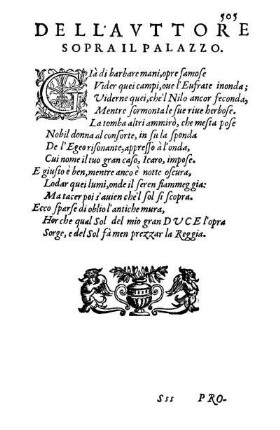 505
DELL'AVTTORE
SOPRA IL PALAZZO.
GIà di barbare mani, opre famose
Vider quei campi, oue l'Eufrate inonda;
Viderne quei, che'l Nilo ancor feconda,
Mentre sormonta le sue riue herbose.
La tomba altri ammirò, che mesta pose
Nobil donna al consorte, in su la sponda
De l'Egeo risonante, appresso à l'onda,
Cui nome il tuo gran caso, Icaro, impose.
E giusto è ben, mentre anco è notte oscura,
Lodar quei lumi, onde il seren fiammeggia:
Ma tacer poi s'auien che'l sol si scopra.
Ecco sparse di oblio l'antiche mura,
Hor che qual Sol del mio gran DVCE l'opra
Sorge, e del Sol fà men prezzar la Reggia.
Sss PRO-